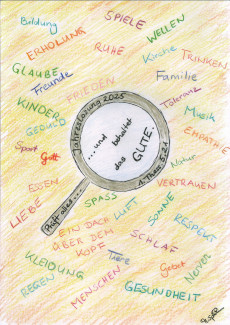 Bildung
SPIELE
WELLEN
ERHOLUNG
RUHE
Küche
TRINKEN
GLAUBE
Familie
Freunde
FRIEDEN
Toleranz
KINDER
Jahreslosung 2025
Musik
GEDULD
...und behaltet
das GUTE.
EMPATHIE
Sport
Gott
1. Thess. 5,21
Natur
ESSEN
VERTRAUEN
LIEBE
Prüft alles...
SPASS
LUFT
SONNE
RESPEKT
EIN DACH
ÜBER DEM
KOPF
SCHLAF
KLEIDUNG
TIERE
Gebet
REGEN
MENSCHEN
GESUNDHEIT